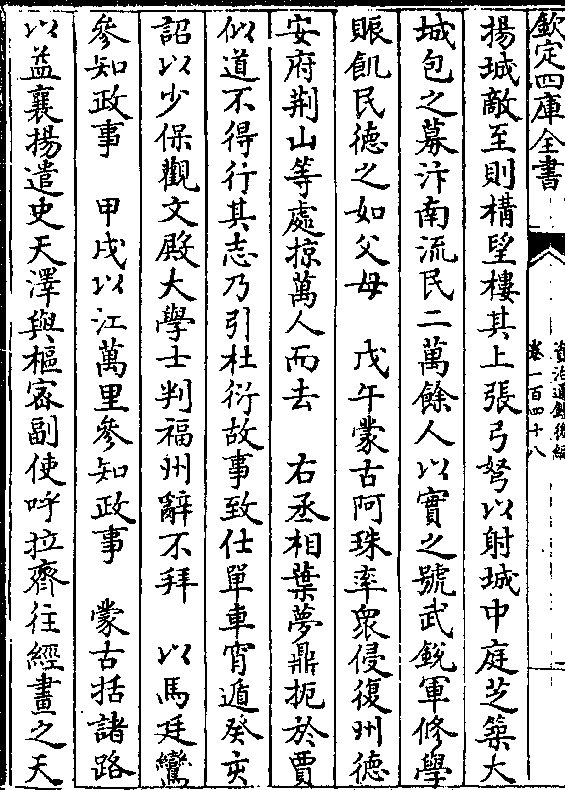 欽定四庫全書
資治通鑑後編
卷一百四十八
揚城敵至則構望樓其上張弓弩以射城中庭芝築大
城包之募汴南流民二萬餘人以實之號武銳軍修學
賑飢民德之如父母　戊午蒙古阿珠率衆侵復州德
安府荆山等處掠萬人而去　右丞相葉夢鼎扼於賈
似道不得行其志乃引杜衍故事致仕單車宵遁癸亥
詔以少保觀文殿大學士判福州辭不拜　以馬廷鸞
參知政事　甲戌以江萬里參知政事　蒙古括諸路
以益襄揚遣史天澤與樞密副使呼拉齊往經畫之天